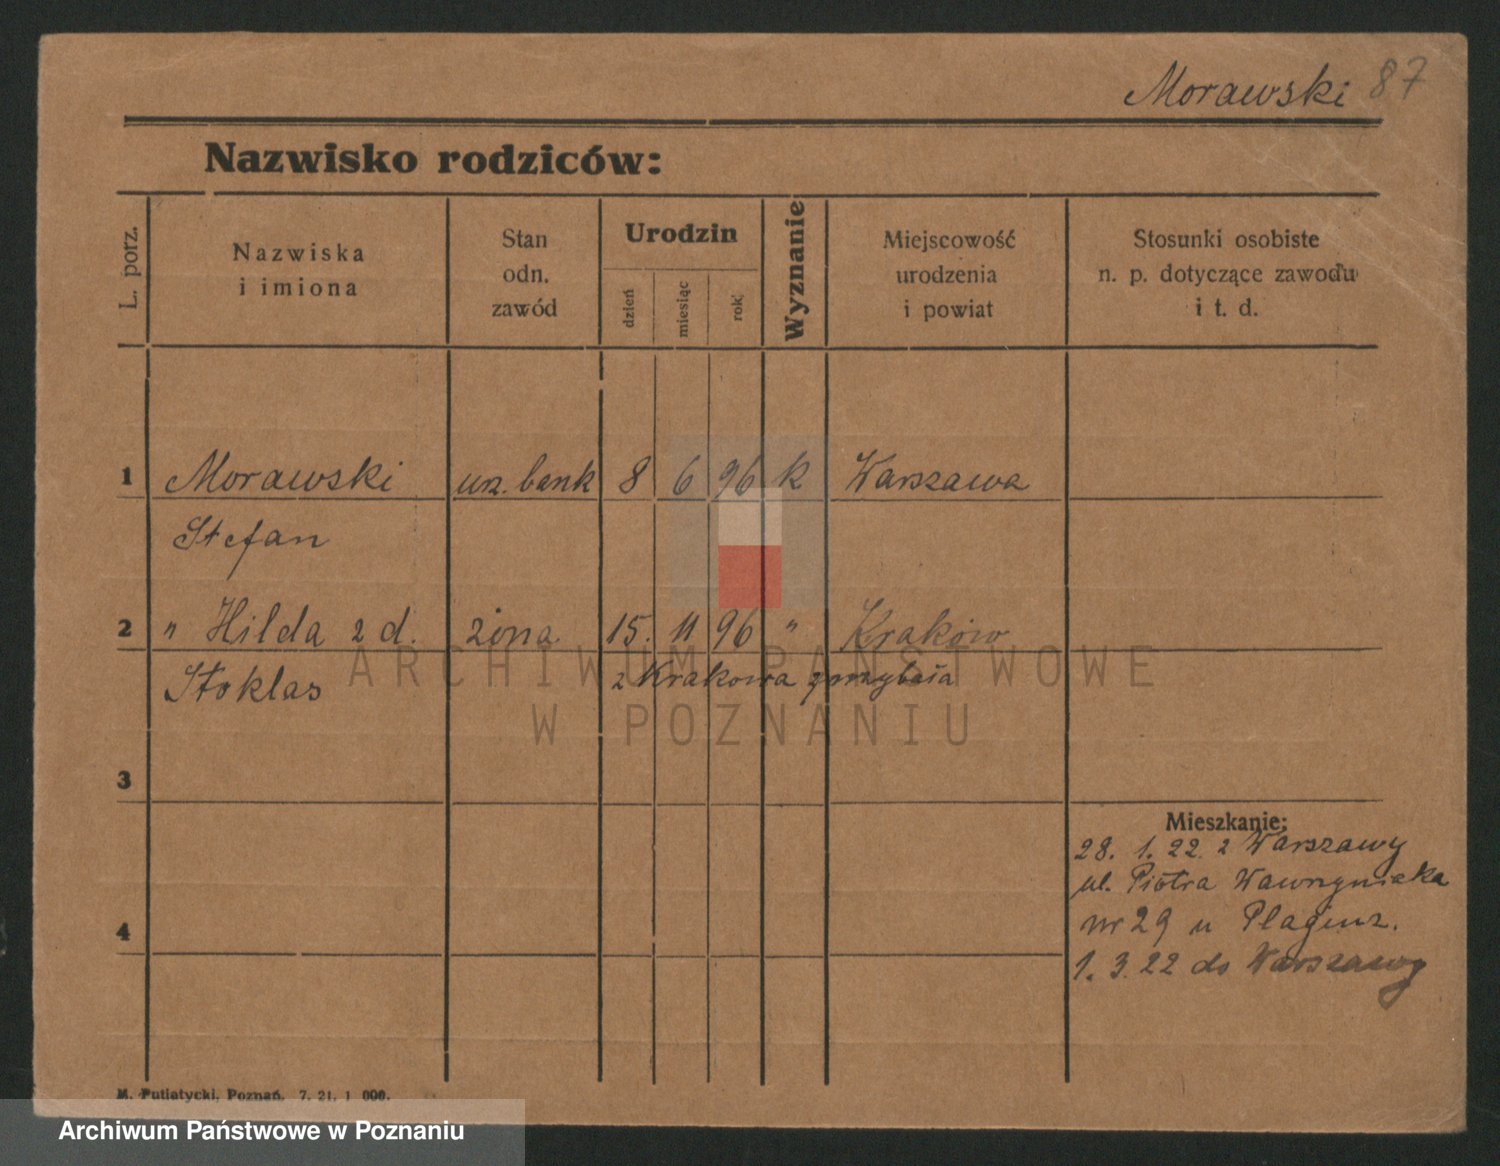 Morawski 87
Nazwisko rodziców:
L. porz.
Nazwiska
i imiona
Stan
odn.
zawód
Urodzin
dzień
miesiąc
rok
Wyznanie
Miejscowość
urodzenia
i powiat
Stosunki osobiste
n. p. dotyczące zawodu
i t. d.
1 Morawski urz. bank 8 6 96 k Warszawa
Stefan
2 " Hilda z d. żona 15. 11 96 " Kraków
Stoklas z Krakowa przybyła
ARCHIWUM PAŃSTWOWE
W POZNANIU
3
Mieszkanie:
28. 1. 22. z Warszawy
ul. Piotra Wawrzyniaka
4
nr 29 u Plagens.
1. 3. 22 do Warszawy
M. Putiatycki, Poznań. 7. 21. 1 000.
Archiwum Państwowe w Poznaniu